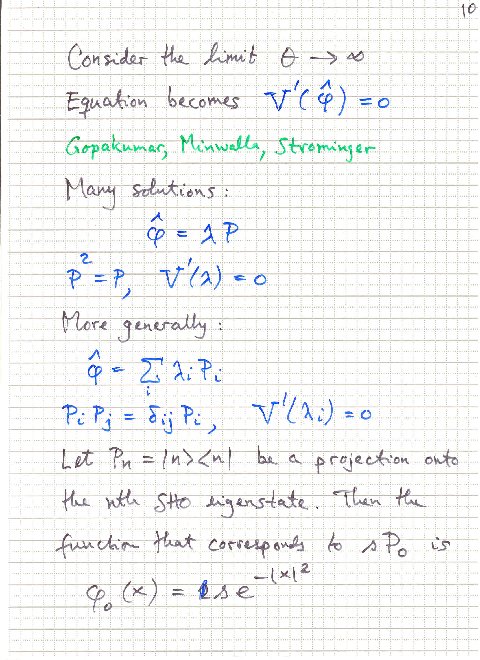 10
Consider the limit θ → ∞
Equation becomes V'(φ̂) = 0
Gopakumar, Minwalla, Strominger
Many solutions :
φ̂ = λ P
P² = P, V'(λ) = 0
More generally :
φ̂ = Σᵢ λᵢ Pᵢ
Pᵢ Pⱼ = δᵢⱼ Pᵢ, V'(λᵢ) = 0
Let Pₙ = |n><n| be a projection onto
the nth SHO eigenstate. Then the
function that corresponds to s P₀ is
φ₀(x) = s e^{-|x|²}